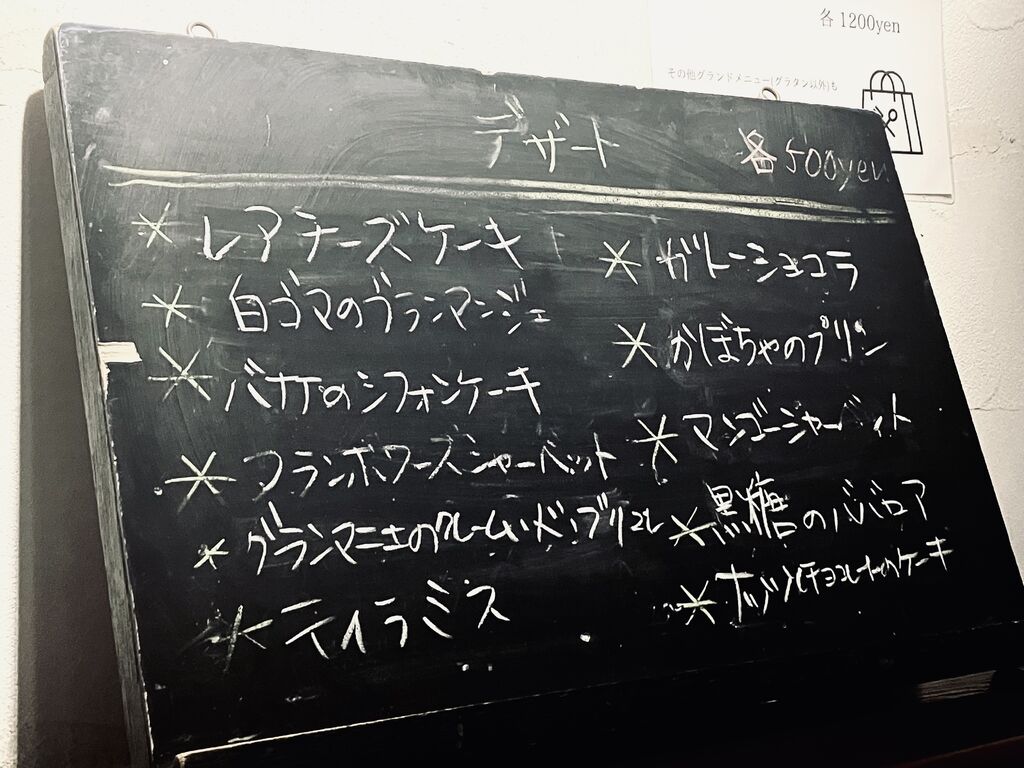 各1200yen
その他グランドメニュー(グラタン以外)も
デザート 各500yen
* レアチーズケーキ
* 白ゴマのブランマンジェ
* バナナのシフォンケーキ
* フランボワーズシャーベット
* グランマニエのクレームド・ブリュレ
* ティラミス
* ガトーショコラ
* かぼちゃのプリン
* マンゴーシャーベット
* 黒糖のババロア
* チョコレートのケーキ